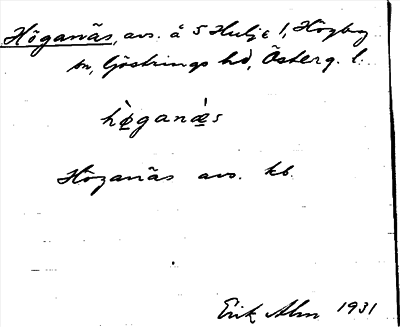 Höganäs, avs. å 5 Hulje 1, Högby
sn, Göstrings hd, Österg. l.
hø̀ganæ̀s
Höganäs avs. kb.
Erik Alm 1931